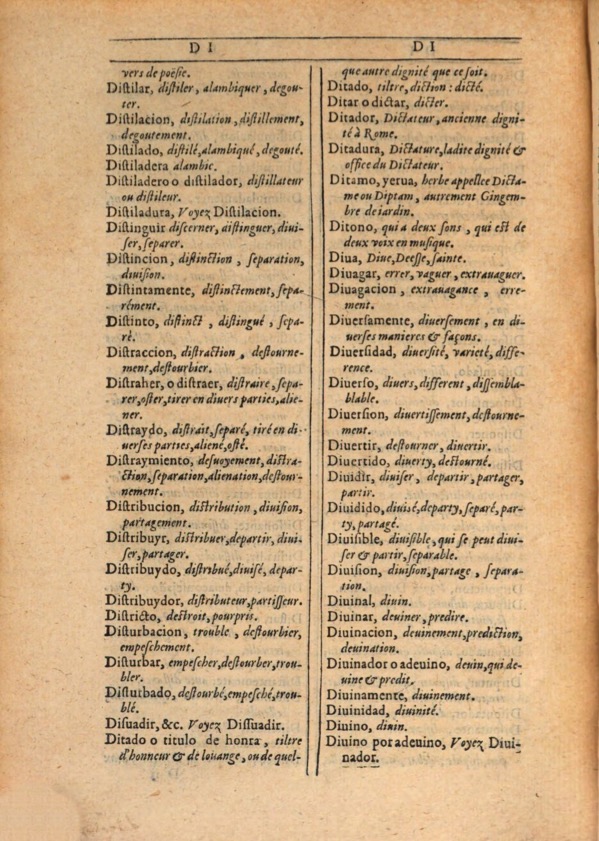 DI
vers de poësie.
Distilar, distiler, alambiquer, degou-
ter.
Distilacion, distilation, distillement,
degoutement.
Distilado, distilé, alambiqué, degouté.
Distiladera alambic.
Distiladero o distilador, distillateur
ou distileur.
Distiladura, Voyez Distilacion.
Distinguir discerner, distinguer, diui-
ser, separer.
Distincion, distinction, separation,
diuision.
Distintamente, distinctement, sepa-
rément.
Distinto, distinct, distingué, sepa-
ré.
Distraccion, distraction, destourne-
ment, destourbier.
Distraher, o distraer, distraire, sepa-
rer, oster, tirer en diuers parties, alie-
ner.
Distraydo, distrait, separé, tiré en di-
uerses parties, aliené, osté.
Distraymiento, desuoyement, distra-
ction, separation, alienation, destour-
nement.
Distribucion, distribution, diuision,
partagement.
Distribuyr, distribuer, departir, diui-
ser, partager.
Distribuydo, distribué, diuisé, depar-
ty.
Distribuydor, distributeur, partisseur.
Districto, destroit, pourpris.
Disturbacion, trouble, destourbier,
empeschement.
Disturbar, empescher, destourber, trou-
bler.
Disturbado, destourbé, empesché, trou-
blé.
Disuadir, &c. Voyez Dissuadir.
Ditado o titulo de honra, tiltre
d'honneur & de louange, ou de quel-
DI
que autre dignité que ce soit.
Ditado, tiltre, diction : dicté.
Ditar o dictar, dicter.
Ditador, Dictateur, ancienne digni-
té à Rome.
Ditadura, Dictature, ladite dignité &
office du Dictateur.
Ditamo, yerua, herbe appellee Dicta-
me ou Diptam, autrement Gingem-
bre de iardin.
Ditono, qui a deux sons, qui est de
deux voix en musique.
Diua, Diue, Deesse, sainte.
Diuagar, errer, vaguer, extrauaguer.
Diuagacion, extrauagance, erre-
ment.
Diuersamente, diuersement, en di-
uerses manieres & façons.
Diuersidad, diuersité, varieté, diffe-
rence.
Diuerso, diuers, different, dissembla-
blable.
Diuersion, diuertissement, destourne-
ment.
Diuertir, destourner, diuertir.
Diuertido, diuerty, destourné.
Diuidir, diuiser, departir, partager,
partir.
Diuidido, diuisé, departy, separé, par-
ty, partagé.
Diuisible, diuisible, qui se peut diui-
ser & partir, separable.
Diuision, diuision, partage, separa-
tion.
Diuinal, diuin.
Diuinar, deuiner, predire.
Diuinacion, deuinement, prediction,
deuination.
Diuinador o adeuino, deuin, qui de-
uine & predit.
Diuinamente, diuinement.
Diuinidad, diuinité.
Diuino, diuin.
Diuino por adeuino, Voyez Diui-
nador.